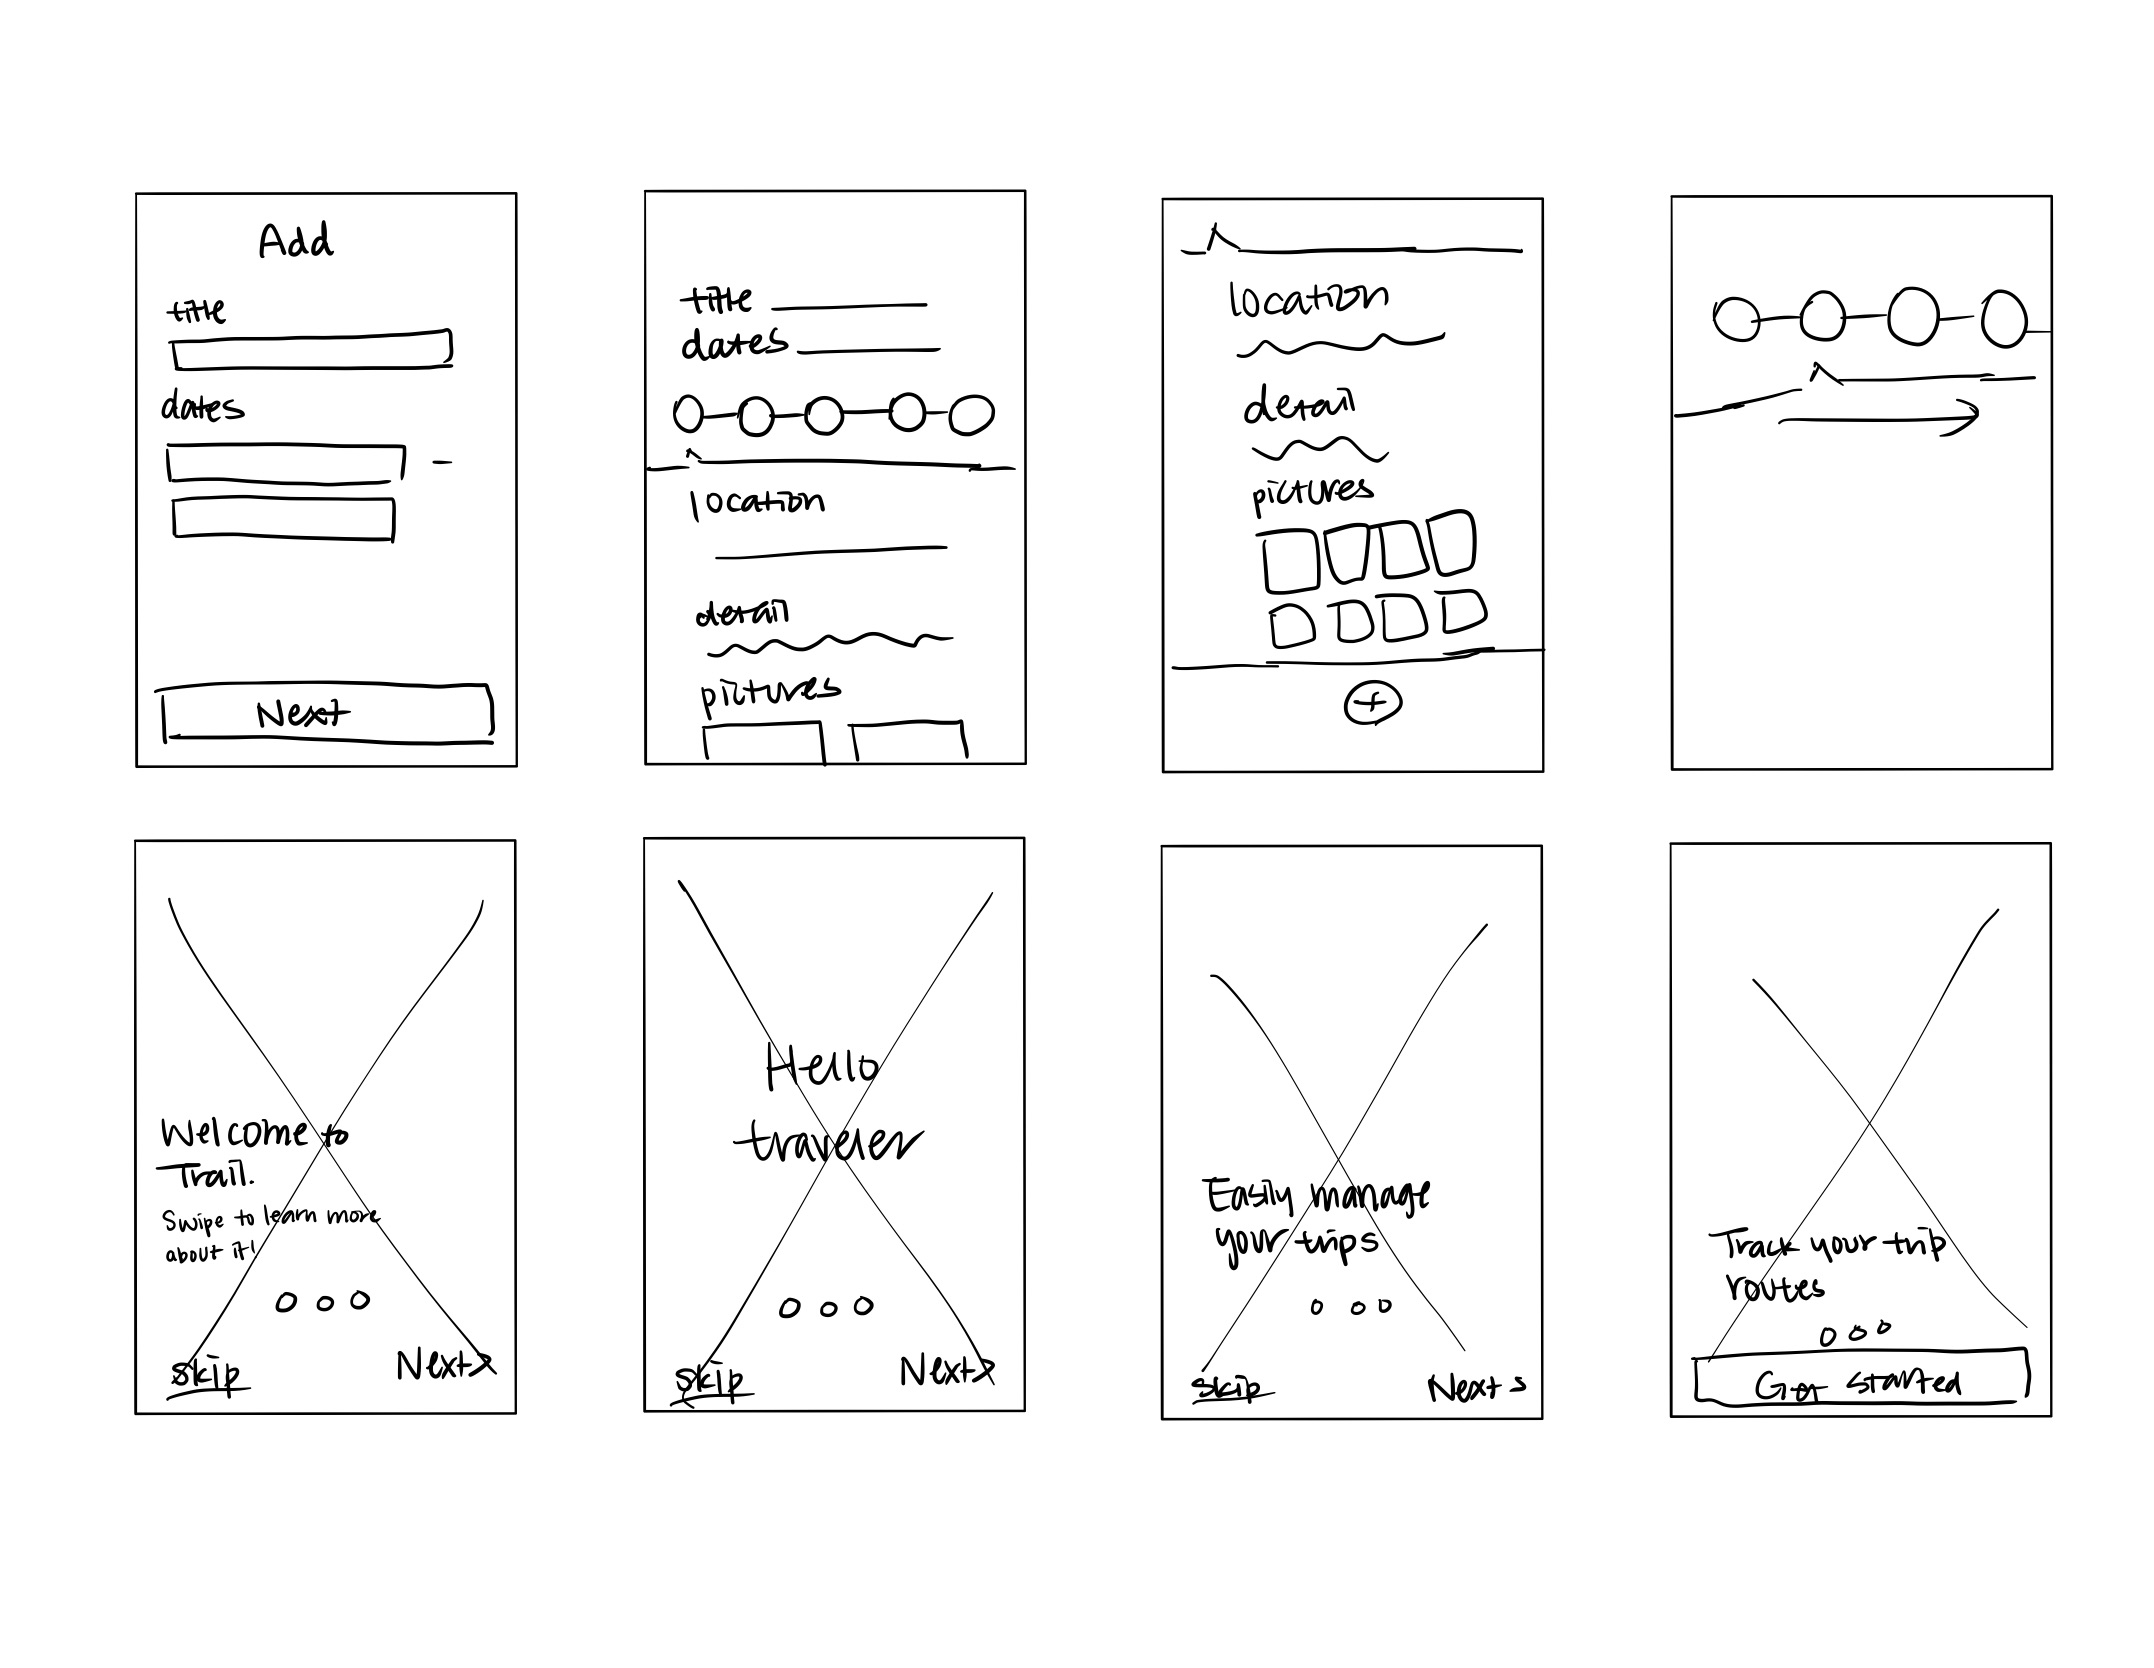 Add
title
dates
Next
title
dates
location
detail
pictures
location
detail
pictures
+
Welcome to
Trail.
Swipe to learn more
about it!
Skip
Next>
Hello
traveler
Skip
Next>
Easily manage
your trips
skip
Next >
Track your trip
routes
Get started